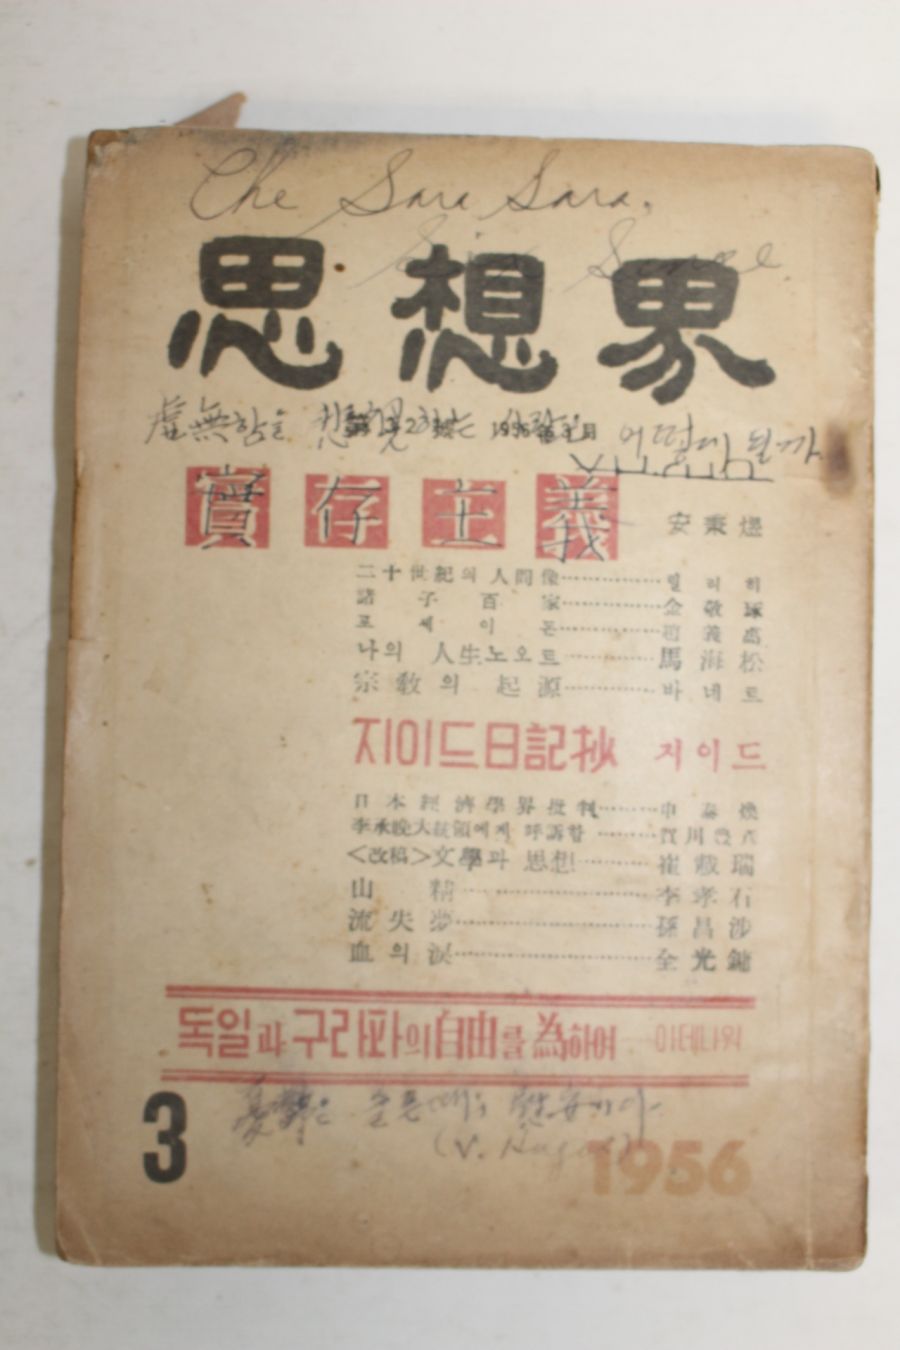 Che Sara Sara.
思想界
虛無함을
1956年3月
어떻게 될까
實存主義 安秉煜
二十世紀의 人間像 힐리히
諸子百家 金敬琢
포세이돈 趙義卨
나의 人生노오트 馬海松
宗敎의 起源 바네트
지이드日記抄 지이드
日本經濟學界批判 申泰煥
李承晩大統領에게 呼訴함 賀川豊彦
<改稿>文學과 思想 崔載瑞
山精 李孝石
流失夢 孫昌涉
血의 淚 全光鏞
독일과 구라파의 自由를 爲하여 아데나워
3
(V. Hugo)
1956